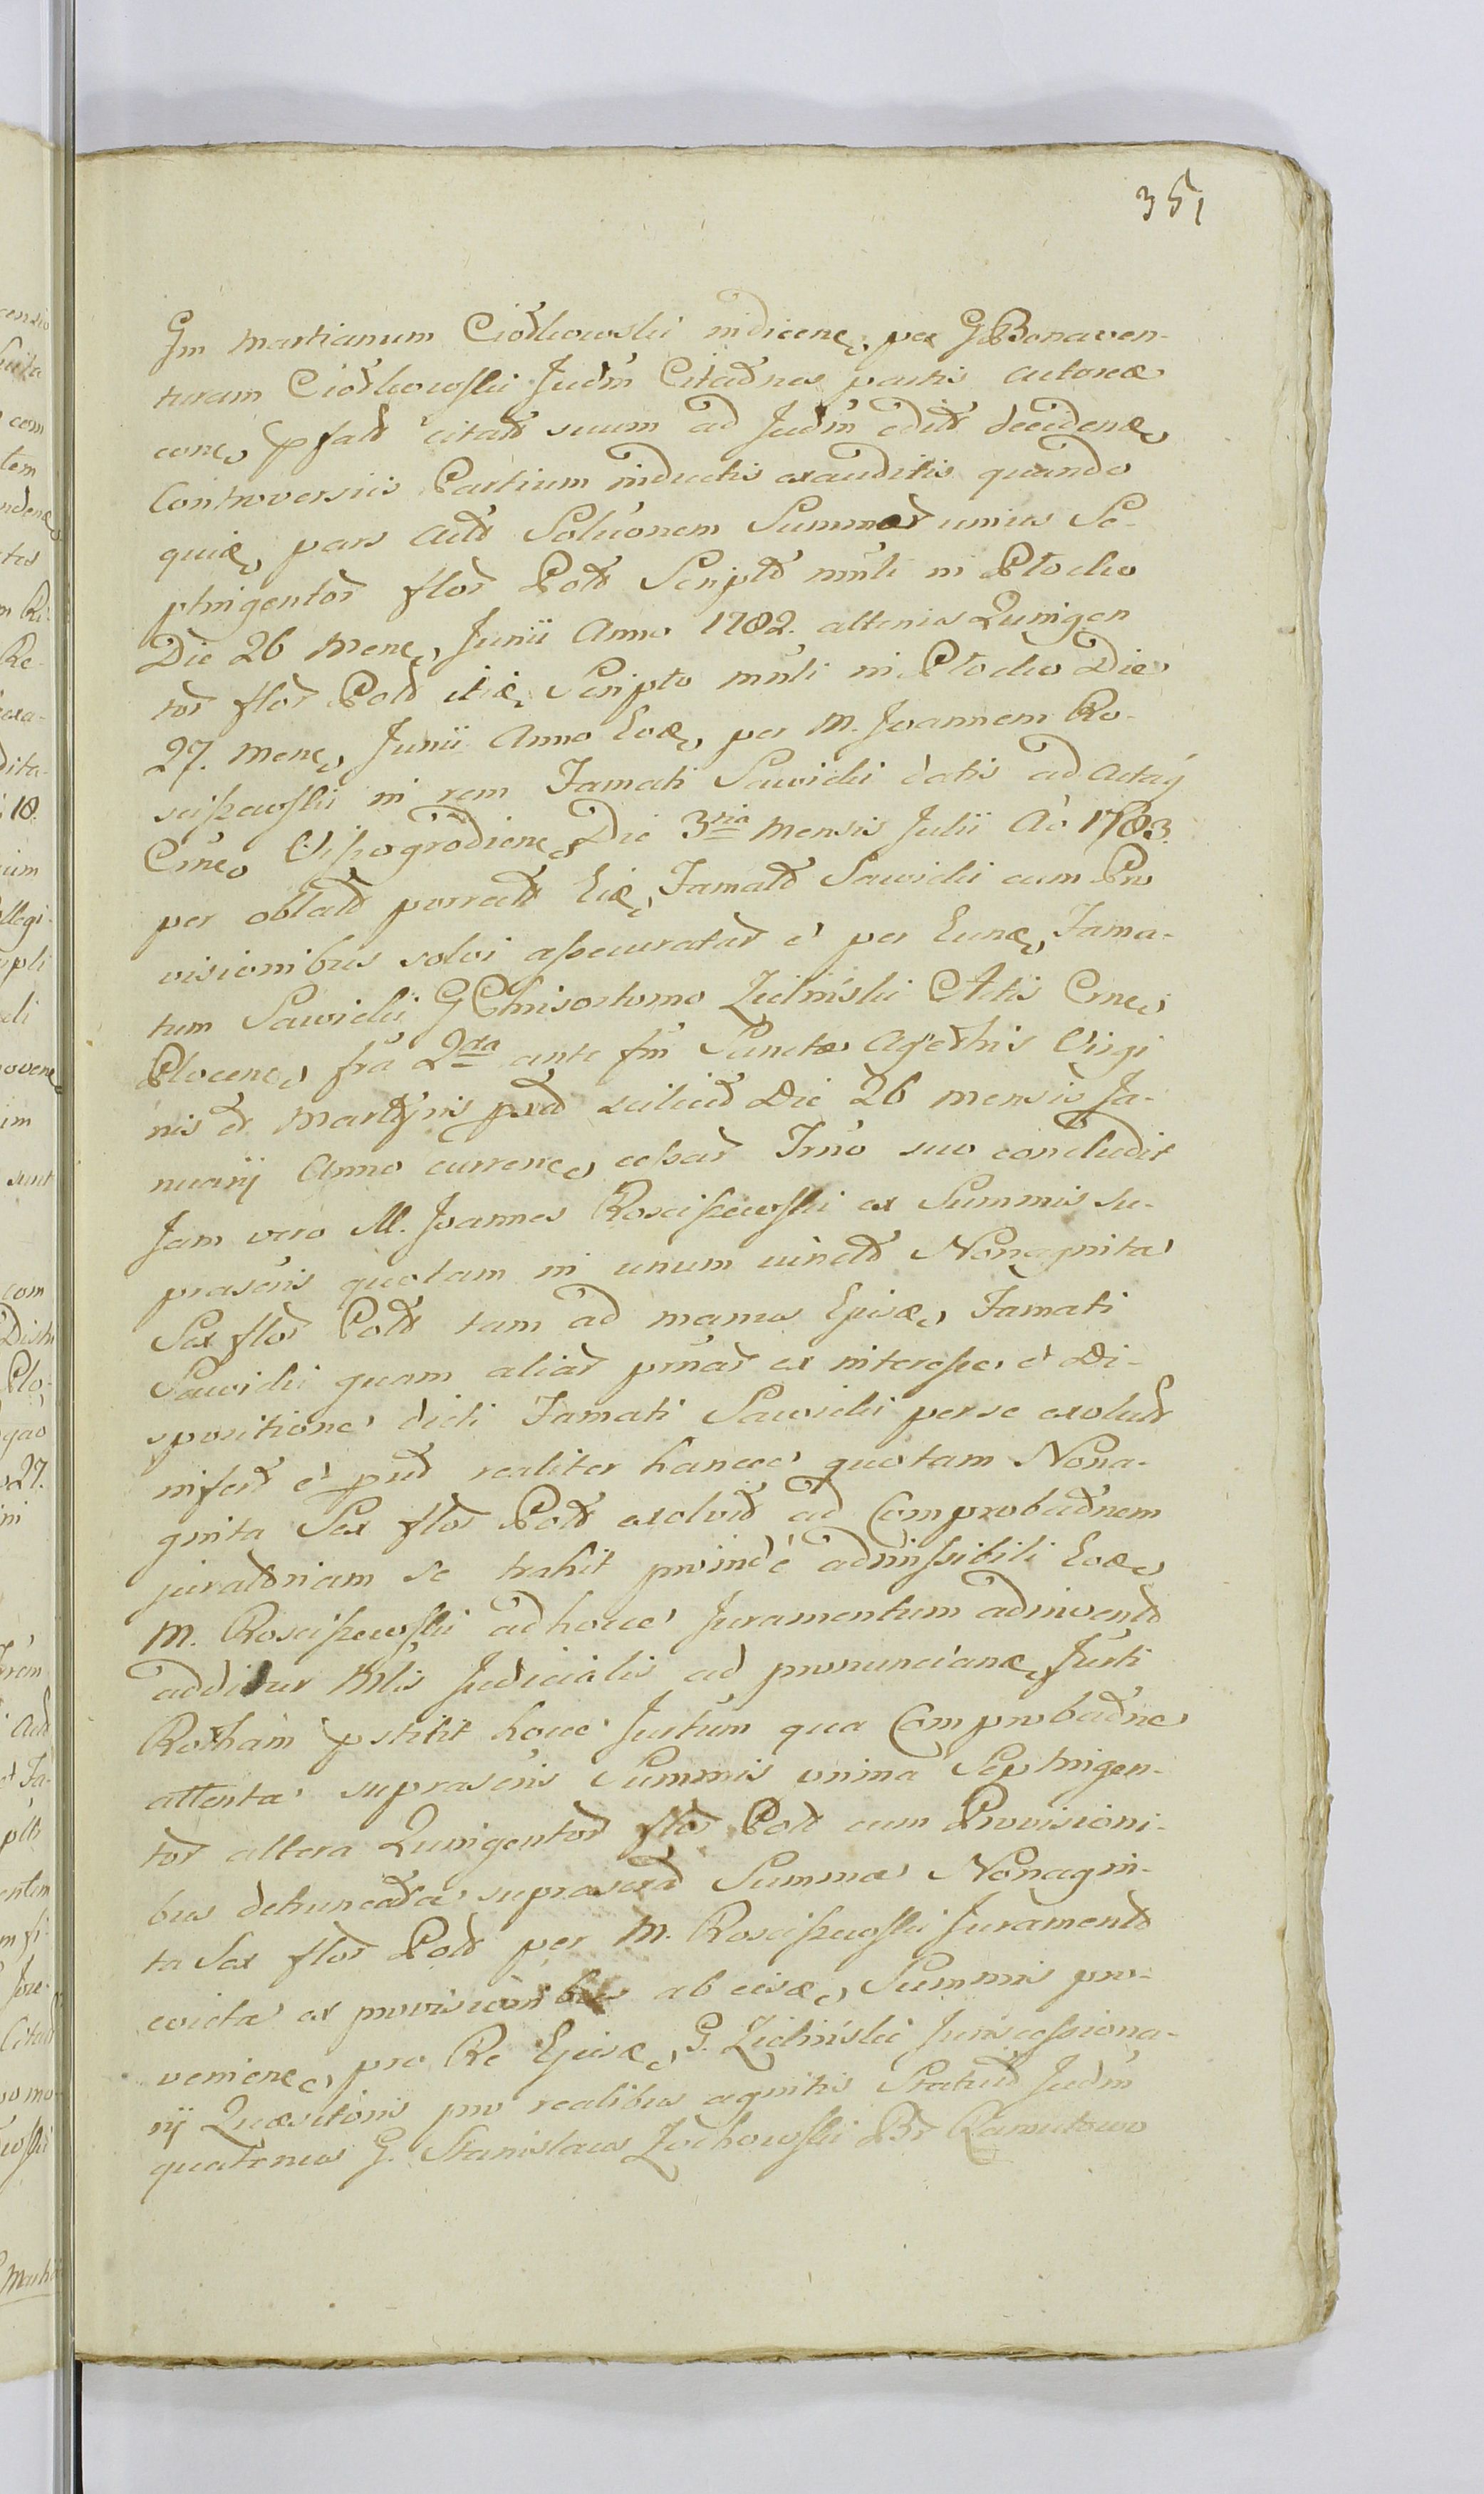 351
Gm Martianum Ciołkowski indicene, per G Bonaven-
turam Ciołkowski Judm Citaōnes partis actoreæ
conc, citat suum ad Judm edit decidene,
Controversiis Partium inductis exauditis quando
quid, pars Act Soluōnem Summar unius Se-
ptingentor flor Pol Script mnli in Płocko
Die 26 Mene, Junii Anno 1782. alterius Quingen
tor flor Pol itid, Scripto mnli in Płocko Die
27. Mene, Junii Anno Eod, per M. Joannem Ro-
sciszewski in rem Famati Sawicki datis ad Acta
Crne, Wiszogrodiene, Die 3tia Mensis Julii Ao 1783.
per oblat porrect Eid, Famato Sawicki cum Pro
visionibus solvi assecuratar è per Eund, Fama-
tum Sawicki G Chrisostomo Zieliński Actis Crne,
Plocene, fra 2da ante fm Sanctæ Agethis Virgi
nis et Martyris prd scilicet Die 26 mensis Ja-
nuarij Anno currene, cessar Irno suo concludit
Jam vero M. Joannes Rosciszewski ex Summis su-
prascris quotam in unum iunct Nonaginta
Sex flor Pol tam ad manus Ejusd, Famati
Sawicki quam aliar prnar ex interesse è Di-
spositione dicti Famati Sawicki per se exolut
infert è realiter hancce quotam Nona-
ginta Sex flor Pol exolvit ad Comprobaōnem
juratoriam se trahit proindè admissibili Eod,
M. Rosciszewski ad hocce Juramentum advent
additur Mlis Judicialis ad pronunciand, Jurti
Rotham pstitit hocce Jurtum qua Comprobaōne
attenta suprascris Summis unima Septingen-
tor altera Quingentor flor Pol cum Provisioni-
bus detruncata suprascrta Summa Nonagin-
ta Sex flor Pol per M. Rosciszewski Jurament
evicta ex provisionibus ab eisd, Summis pro-
veniene, pro Re Ejusd, G. Zieliński Juriscessiona-
rij Quæsitoris pro realibus agnitis Statuit Judm
quatenus G. Stanislaus Zochowski Br Ramutowo